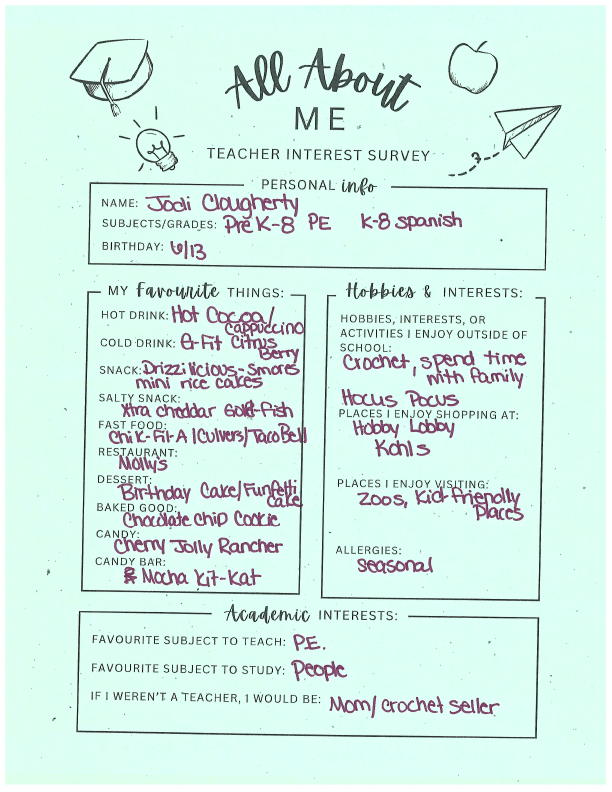 All About
ME
TEACHER INTEREST SURVEY
PERSONAL info
NAME: Jodi Clougherty
SUBJECTS/GRADES: Pre K-8 PE K-8 spanish
BIRTHDAY: 6/13
MY Favourite THINGS:
HOT DRINK: Hot Cocoa/
cappuccino
COLD DRINK: G-Fit Citrus
Berry
SNACK: Drizzilicious-Smores
mini rice cakes
SALTY SNACK:
Xtra cheddar Gold-fish
FAST FOOD:
Chik-Fit-A/Culvers/Taco Bell
RESTAURANT:
Molly's
DESSERT:
Birthday Cake/Funfetti
Cake
BAKED GOOD:
Chocolate Chip Cookie
CANDY:
Cherry Jolly Rancher
CANDY BAR:
Mocha Kit-Kat
Hobbies & INTERESTS:
HOBBIES, INTERESTS, OR
ACTIVITIES I ENJOY OUTSIDE OF
SCHOOL:
Crochet, spend time
with family
Hocus Pocus
PLACES I ENJOY SHOPPING AT:
Hobby Lobby
Kohls
PLACES I ENJOY VISITING:
Zoos, Kid-Friendly
Places
ALLERGIES:
Seasonal
Academic INTERESTS:
FAVOURITE SUBJECT TO TEACH: PE.
FAVOURITE SUBJECT TO STUDY: People
IF I WEREN'T A TEACHER, I WOULD BE: Mom/crochet seller